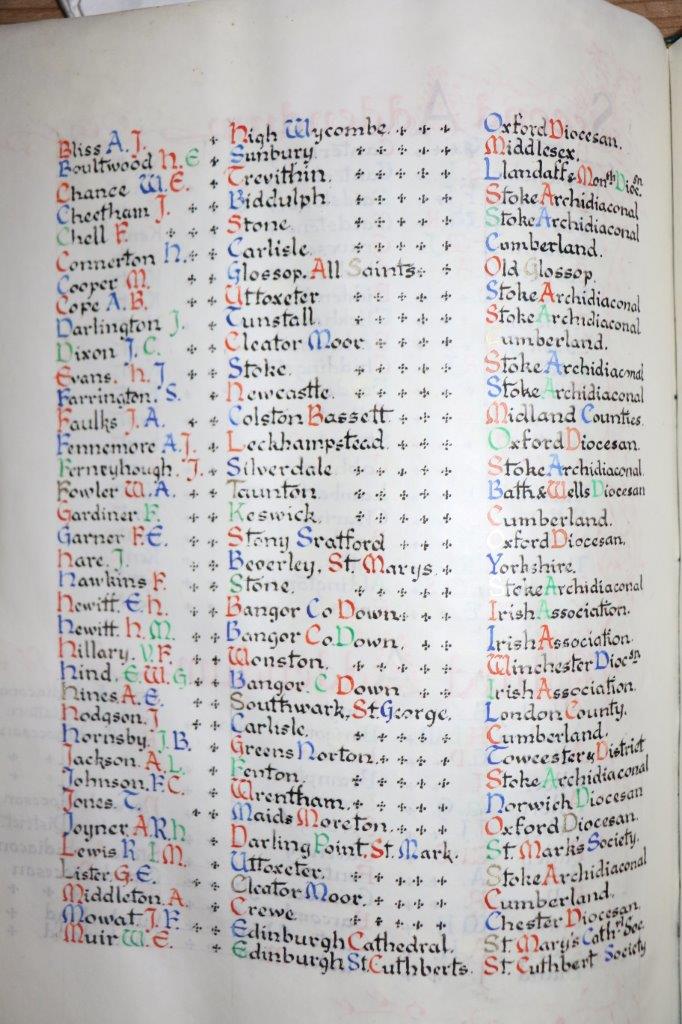 Bliss A.J. High Wycombe. Oxford Diocesan.
Boultwood H.E Sunbury. Middlesex.
Chance W.E. Trevithin. Llandaff & Month Diocsn.
Cheetham J. Biddulph Stoke Archidiaconal
Chell F. Stone. Stoke Archidiaconal
Connerton H. Carlisle. Cumberland.
Cooper M. Glossop. All Saints. Old Glossop.
Cope A.B. Uttoxeter Stoke Archidiaconal
Darlington J. Tunstall Stoke Archidiaconal
Dixon J.C. Cleator Moor Cumberland.
Evans. H.J Stoke. Stoke Archidiaconal
Farrington. S. Newcastle. Stoke Archidiaconal
Faulks J.A. Colston Bassett Midland Counties.
Fennemore A.J. Leckhampstead. Oxford Diocesan.
Ferneyhough. J. Silverdale Stoke Archidiaconal.
Fowler W.A. Taunton Bath & Wells Diocesan
Gardiner F. Keswick. Cumberland.
Garner F.E. Stony Sratford Oxford Diocesan.
Hare. J. Beverley. St Marys. Yorkshire.
Hawkins F. Stone. Stoke Archidiaconal
Hewitt. E.H. Bangor Co Down. Irish Association.
Hewitt. H.M. Bangor Co. Down. Irish Association.
Hillary. V.F. Wonston. Winchester Diocsn.
Hind. E.W.G. Bangor. C Down Irish Association.
Hines A.E. Southwark. St. George. London County.
Hodgson. J Carlisle. Cumberland.
Hornsby. J.B. Greens Norton. Towcester & District
Jackson. A.L. Fenton. Stoke Archidiaconal
Johnson. F.C. Wrentham. Norwich Diocesan
Jones. T. Maids Moreton. Oxford Diocesan.
Joyner. A.R.H. Darling Point. St. Mark. St. Mark's Society.
Lewis R.I.M. Uttoxeter. Stoke Archidiaconal
Lister. G.E. Cleator Moor. Cumberland.
Middleton. A. Crewe. Chester Diocesan.
Mowat. J.F. Edinburgh Cathedral. St Mary's Cathl Soc.
Muir W.E. Edinburgh St. Cuthberts. St. Cuthbert Society